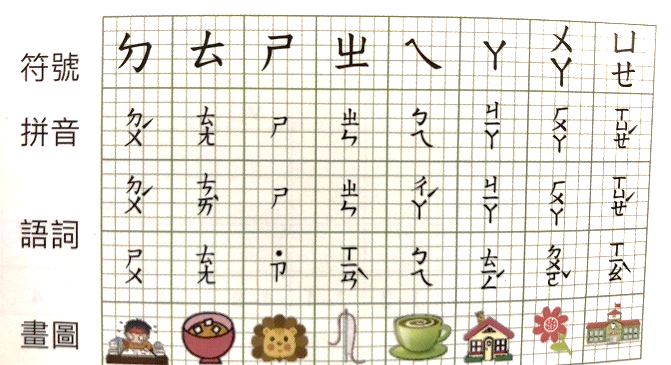 符號 ㄉ ㄊ ㄕ ㄓ ㄟ ㄚ ㄨㄚ ㄩㄝ
拼音 ㄉㄨˊ ㄊㄤ ㄕ ㄓㄣ ㄅㄟ ㄐㄧㄚ ㄏㄨㄚ ㄒㄩㄝˊ
語詞 ㄉㄨˊ ㄘㄞˋ ㄕ ㄓㄣ ㄔㄚˊ ㄐㄧㄚ ㄏㄨㄚ ㄒㄩㄝˊ
ㄕㄨ ㄊㄤ ˙ㄗ ㄒㄧㄢˋ ㄅㄟ ㄊㄧㄥˊ ㄉㄨㄛˇ ㄒㄧㄠˋ
畫圖